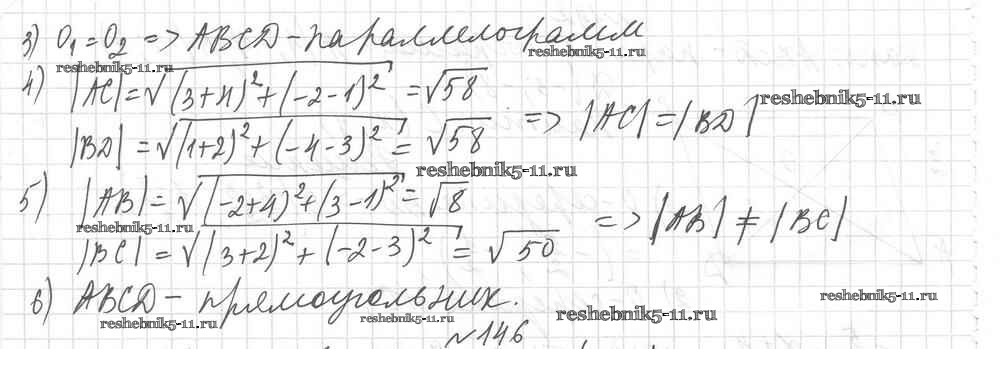 3) O₁ = O₂ => ABCD - параллелограмм
reshebnik5-11.ru
reshebnik5-11.ru
4) |AC| = √(3+4)²+(-2-1)² = √58
reshebnik5-11.ru
|BD| = √(1+2)²+(-4-3)² = √58 => |AC| = |BD|
reshebnik5-11.ru
5) |AB| = √(-2+4)²+(3-1)² = √8
reshebnik5-11.ru
|BC| = √(3+2)²+(-2-3)² = √50 => |AB| ≠ |BC|
6) ABCD - прямоугольник.
reshebnik5-11.ru
reshebnik5-11.ru
reshebnik5-11.ru
reshebnik5-11.ru
№146